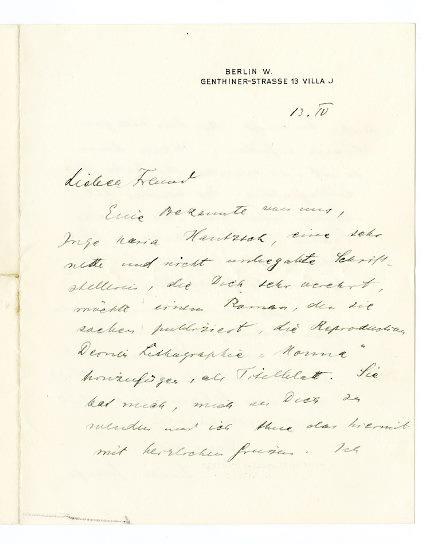 BERLIN W.
GENTHINER-STRASSE 13 VILLA J
13. IV
Lieber Freund
Eine Bekannte von uns,
Inge Maria Hantzsch, eine sehr
nette und nicht unbegabte Schrift-
stellerin, die Dich sehr verehrt,
möchte einem Roman, den sie
soeben publiziert, die Reproduction
Deiner Lithographie „Nonna"
hinzufügen, als Titelblatt. Sie
bat mich, mich an Dich zu
wenden und ich thue das hiermit
mit herzlichen Grüßen. Ich